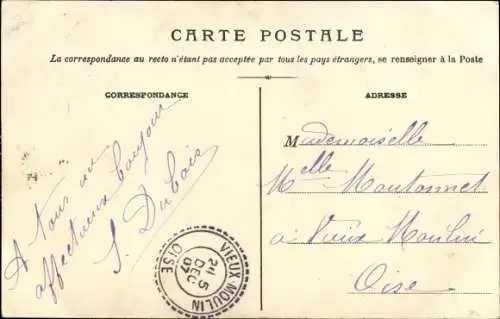 CARTE POSTALE
La correspondance au recto n'étant pas acceptée par tous les pays étrangers, se renseigner à la Poste
CORRESPONDANCE
A tous un
affectueux bonjour
S. Dubois
ADRESSE
Mademoiselle
Melle Moutonnet
à Vieux Moulin
Oise
VIEUX MOULIN
5
DEC
07
OISE